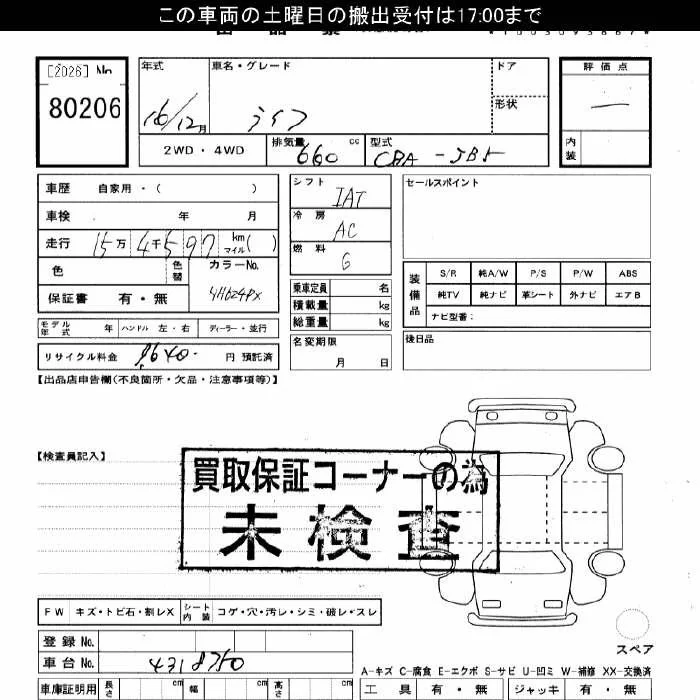 この車両の土曜日の搬出受付は17:00まで
[2026] No
80206
年式 16/12月
車名・グレード ライフ
ドア
形状
評価点 —
内装
2WD・4WD
排気量 660 cc
型式 CBA-JB5
車歴 自家用・( )
車検 . 年 月
走行 15万4千597 km マイル( )
色 色替 カラーNo.
保証書 有・無 YH624PX
シフト IAT
冷房 AC
燃料 G
セールスポイント
乗車定員 名
積載量 kg
総重量 kg
名変期限 月 日
装備品
S/R 純A/W P/S P/W ABS
純TV 純ナビ 革シート 外ナビ エアB
ナビ型番:
後日品
モデル年式 年 ハンドル 左・右 ディーラー・並行
リサイクル料金 9640. 円 預託済
【出品店申告欄(不良箇所・欠品・注意事項等)】
【検査員記入】
買取保証コーナーの為
未検査
FW キズ・トビ石・割レX シート内装 コゲ・穴・汚レ・シミ・破レ・スレ
登録No.
車台No. 4318750
スペア
A-キズ C-腐食 E-エクボ S-サビ U-凹ミ W-補修 XX-交換済
車庫証明用 長さ cm 幅 cm 高さ cm
工具 有・無 ジャッキ 有・無